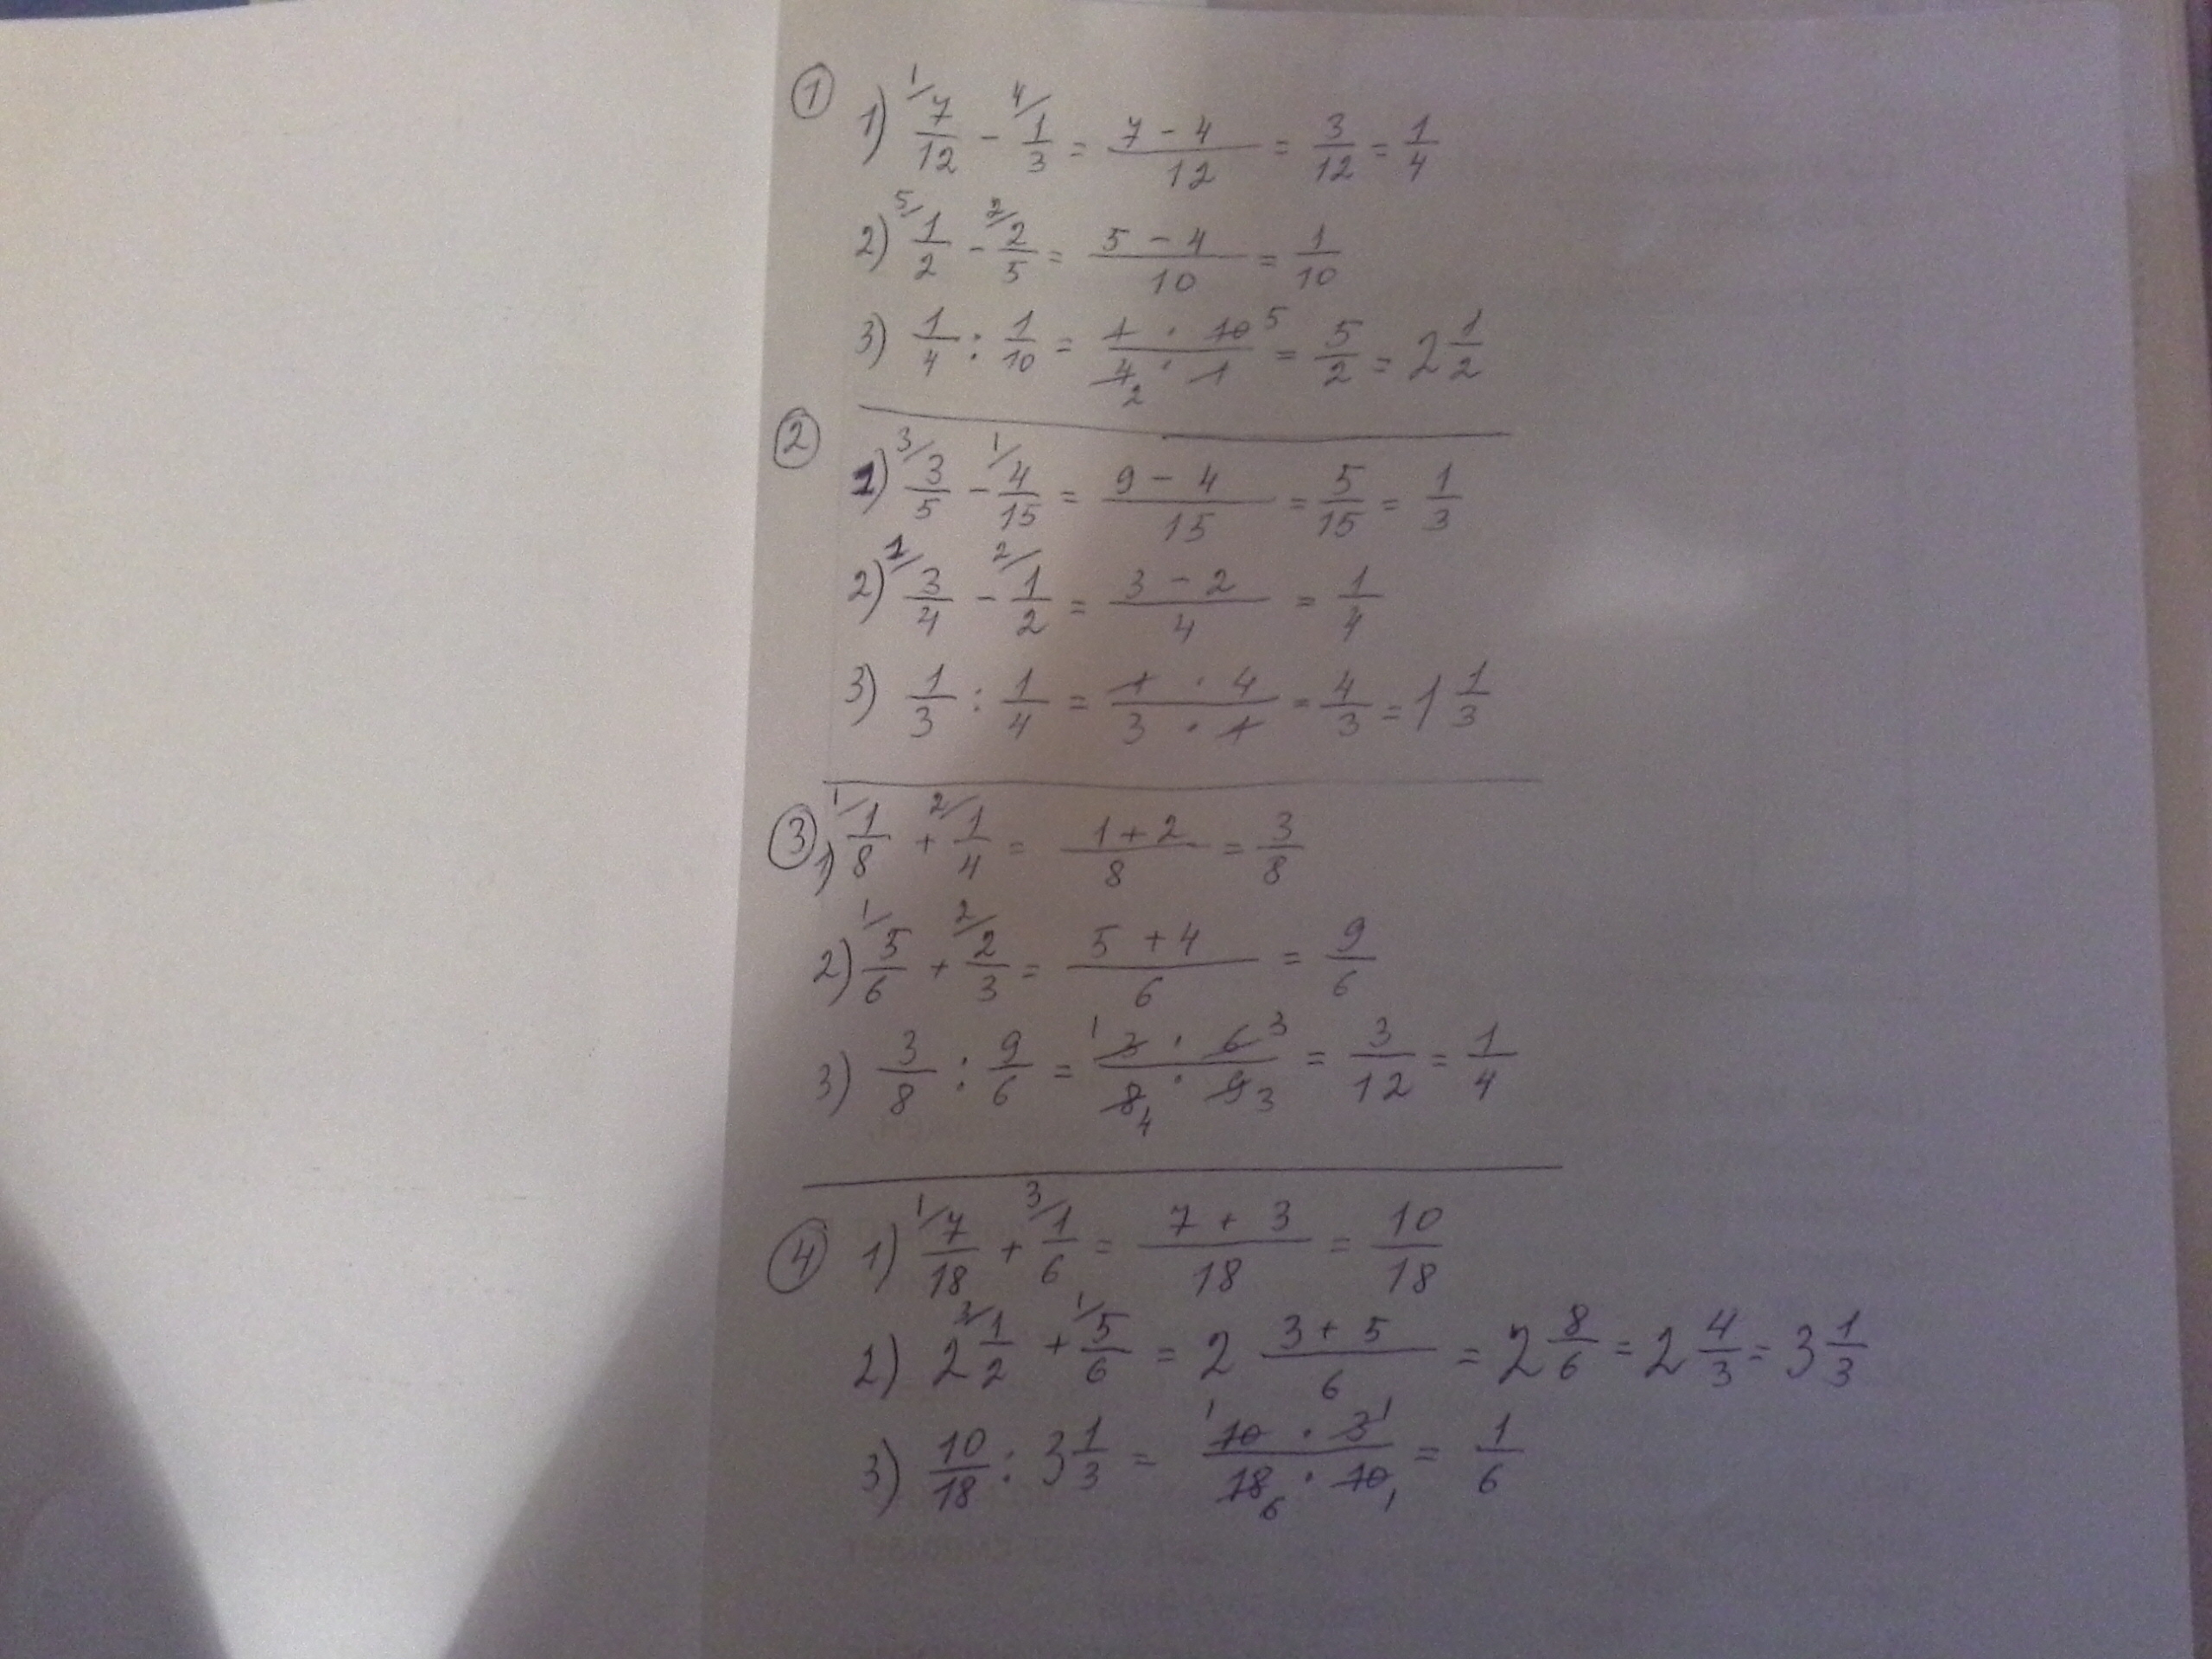 ① 1) ¹/ 7/12 - ⁴/ 1/3 = (7 - 4)/12 = 3/12 = 1/4
2) ⁵/ 1/2 - ²/ 2/5 = (5 - 4)/10 = 1/10
3) 1/4 : 1/10 = (1 · 10 5)/(4 2 · 1) = 5/2 = 2 1/2
② 1) ³/ 3/5 - ¹/ 4/15 = (9 - 4)/15 = 5/15 = 1/3
2) ¹/ 3/4 - ²/ 1/2 = (3 - 2)/4 = 1/4
3) 1/3 : 1/4 = (1 · 4)/(3 · 1) = 4/3 = 1 1/3
③ 1) ¹/ 1/8 + ²/ 1/4 = (1 + 2)/8 = 3/8
2) ¹/ 5/6 + ²/ 2/3 = (5 + 4)/6 = 9/6
3) 3/8 : 9/6 = (1 3 · 6 3)/(8 4 · 9 3) = 3/12 = 1/4
④ 1) ¹/ 7/18 + ³/ 1/6 = (7 + 3)/18 = 10/18
2) 2 ³/ 1/2 + ¹/ 5/6 = 2 (3 + 5)/6 = 2 8/6 = 2 4/3 = 3 1/3
3) 10/18 : 3 1/3 = (1 10 · 3 1)/(18 6 · 10 1) = 1/6